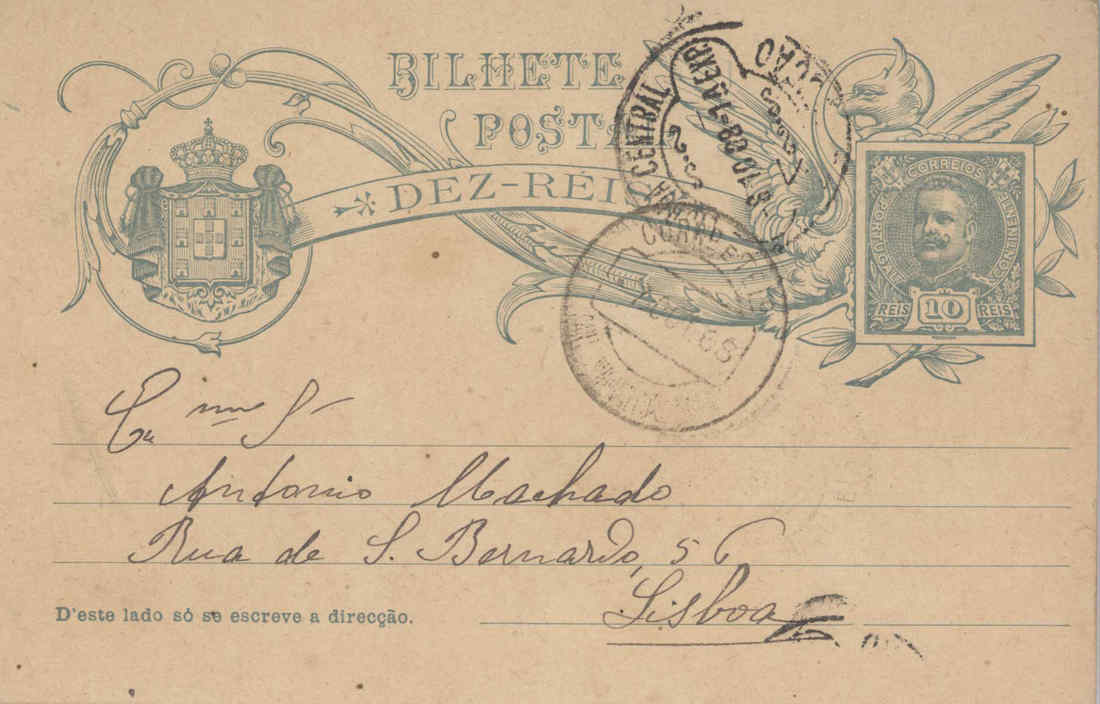 BILHETE
POSTAL
DEZ-RÉIS
CORREIOS
PORTUGAL
CONTINENTE
REIS 10 REIS
CENTRAL
8-10 98-1A EXP
CORREIO
Ex mo Sr
Antonio Machado
Rua de S. Bernardo, 56
Lisboa
D'este lado só se escreve a direcção.